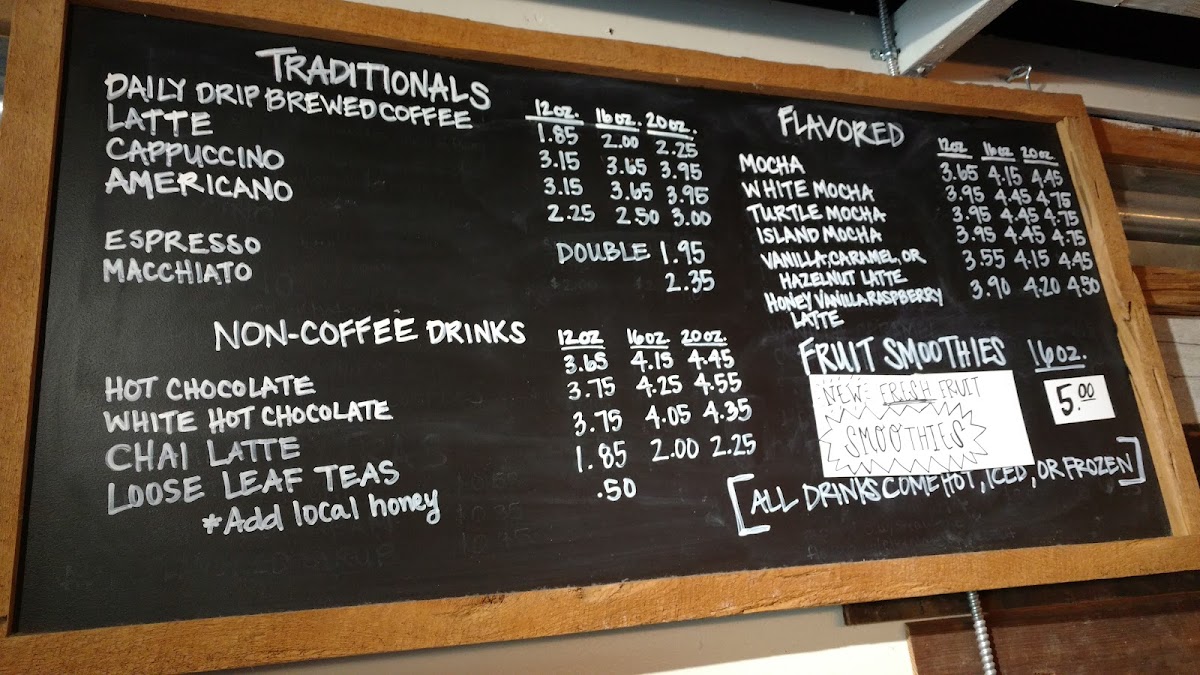 TRADITIONALS
12oz. 16oz. 20oz.
DAILY DRIP BREWED COFFEE 1.85 2.00 2.25
LATTE 3.15 3.65 3.95
CAPPUCCINO 3.15 3.65 3.95
AMERICANO 2.25 2.50 3.00
ESPRESSO DOUBLE 1.95
MACCHIATO 2.35
NON-COFFEE DRINKS 12oz 16oz. 20oz.
HOT CHOCOLATE 3.65 4.15 4.45
WHITE HOT CHOCOLATE 3.75 4.25 4.55
CHAI LATTE 3.75 4.05 4.35
LOOSE LEAF TEAS 1.85 2.00 2.25
*Add local honey .50
FLAVORED 12oz 16oz 20oz.
MOCHA 3.65 4.15 4.45
WHITE MOCHA 3.95 4.45 4.75
TURTLE MOCHA 3.95 4.45 4.75
ISLAND MOCHA 3.95 4.45 4.75
VANILLA, CARAMEL, OR 3.55 4.15 4.45
HAZELNUT LATTE
HONEY VANILLA RASPBERRY 3.90 4.20 4.50
LATTE
FRUIT SMOOTHIES 16oz.
NEW FRESH FRUIT 5.00
SMOOTHIES
[ALL DRINKS COME HOT, ICED, OR FROZEN]